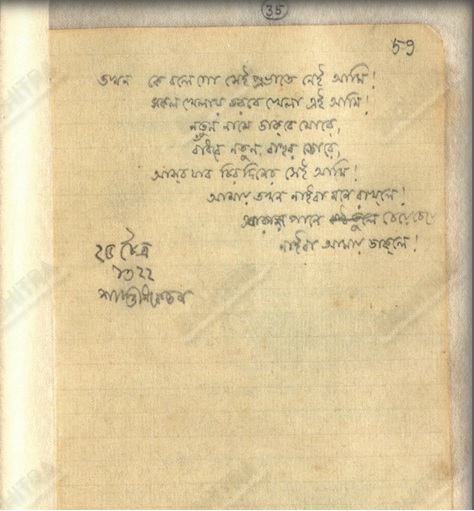 35
59
তখন কে বলে গো সেই প্রভাতে নেই আমি!
সকল খেলায় করবে খেলা এই আমি!
নতুন নামে ডাকবে মোরে,
বাঁধবে নতুন বাহুর ডোরে,
আসব যাব চিরদিনের সেই আমি!
আমায় তখন নাইবা মনে রাখলে!
তারার পানে চেয়ে চেয়ে
নাইবা আমায় ডাকলে!
২৫ চৈত্র
১৩২২
শান্তিনিকেতন